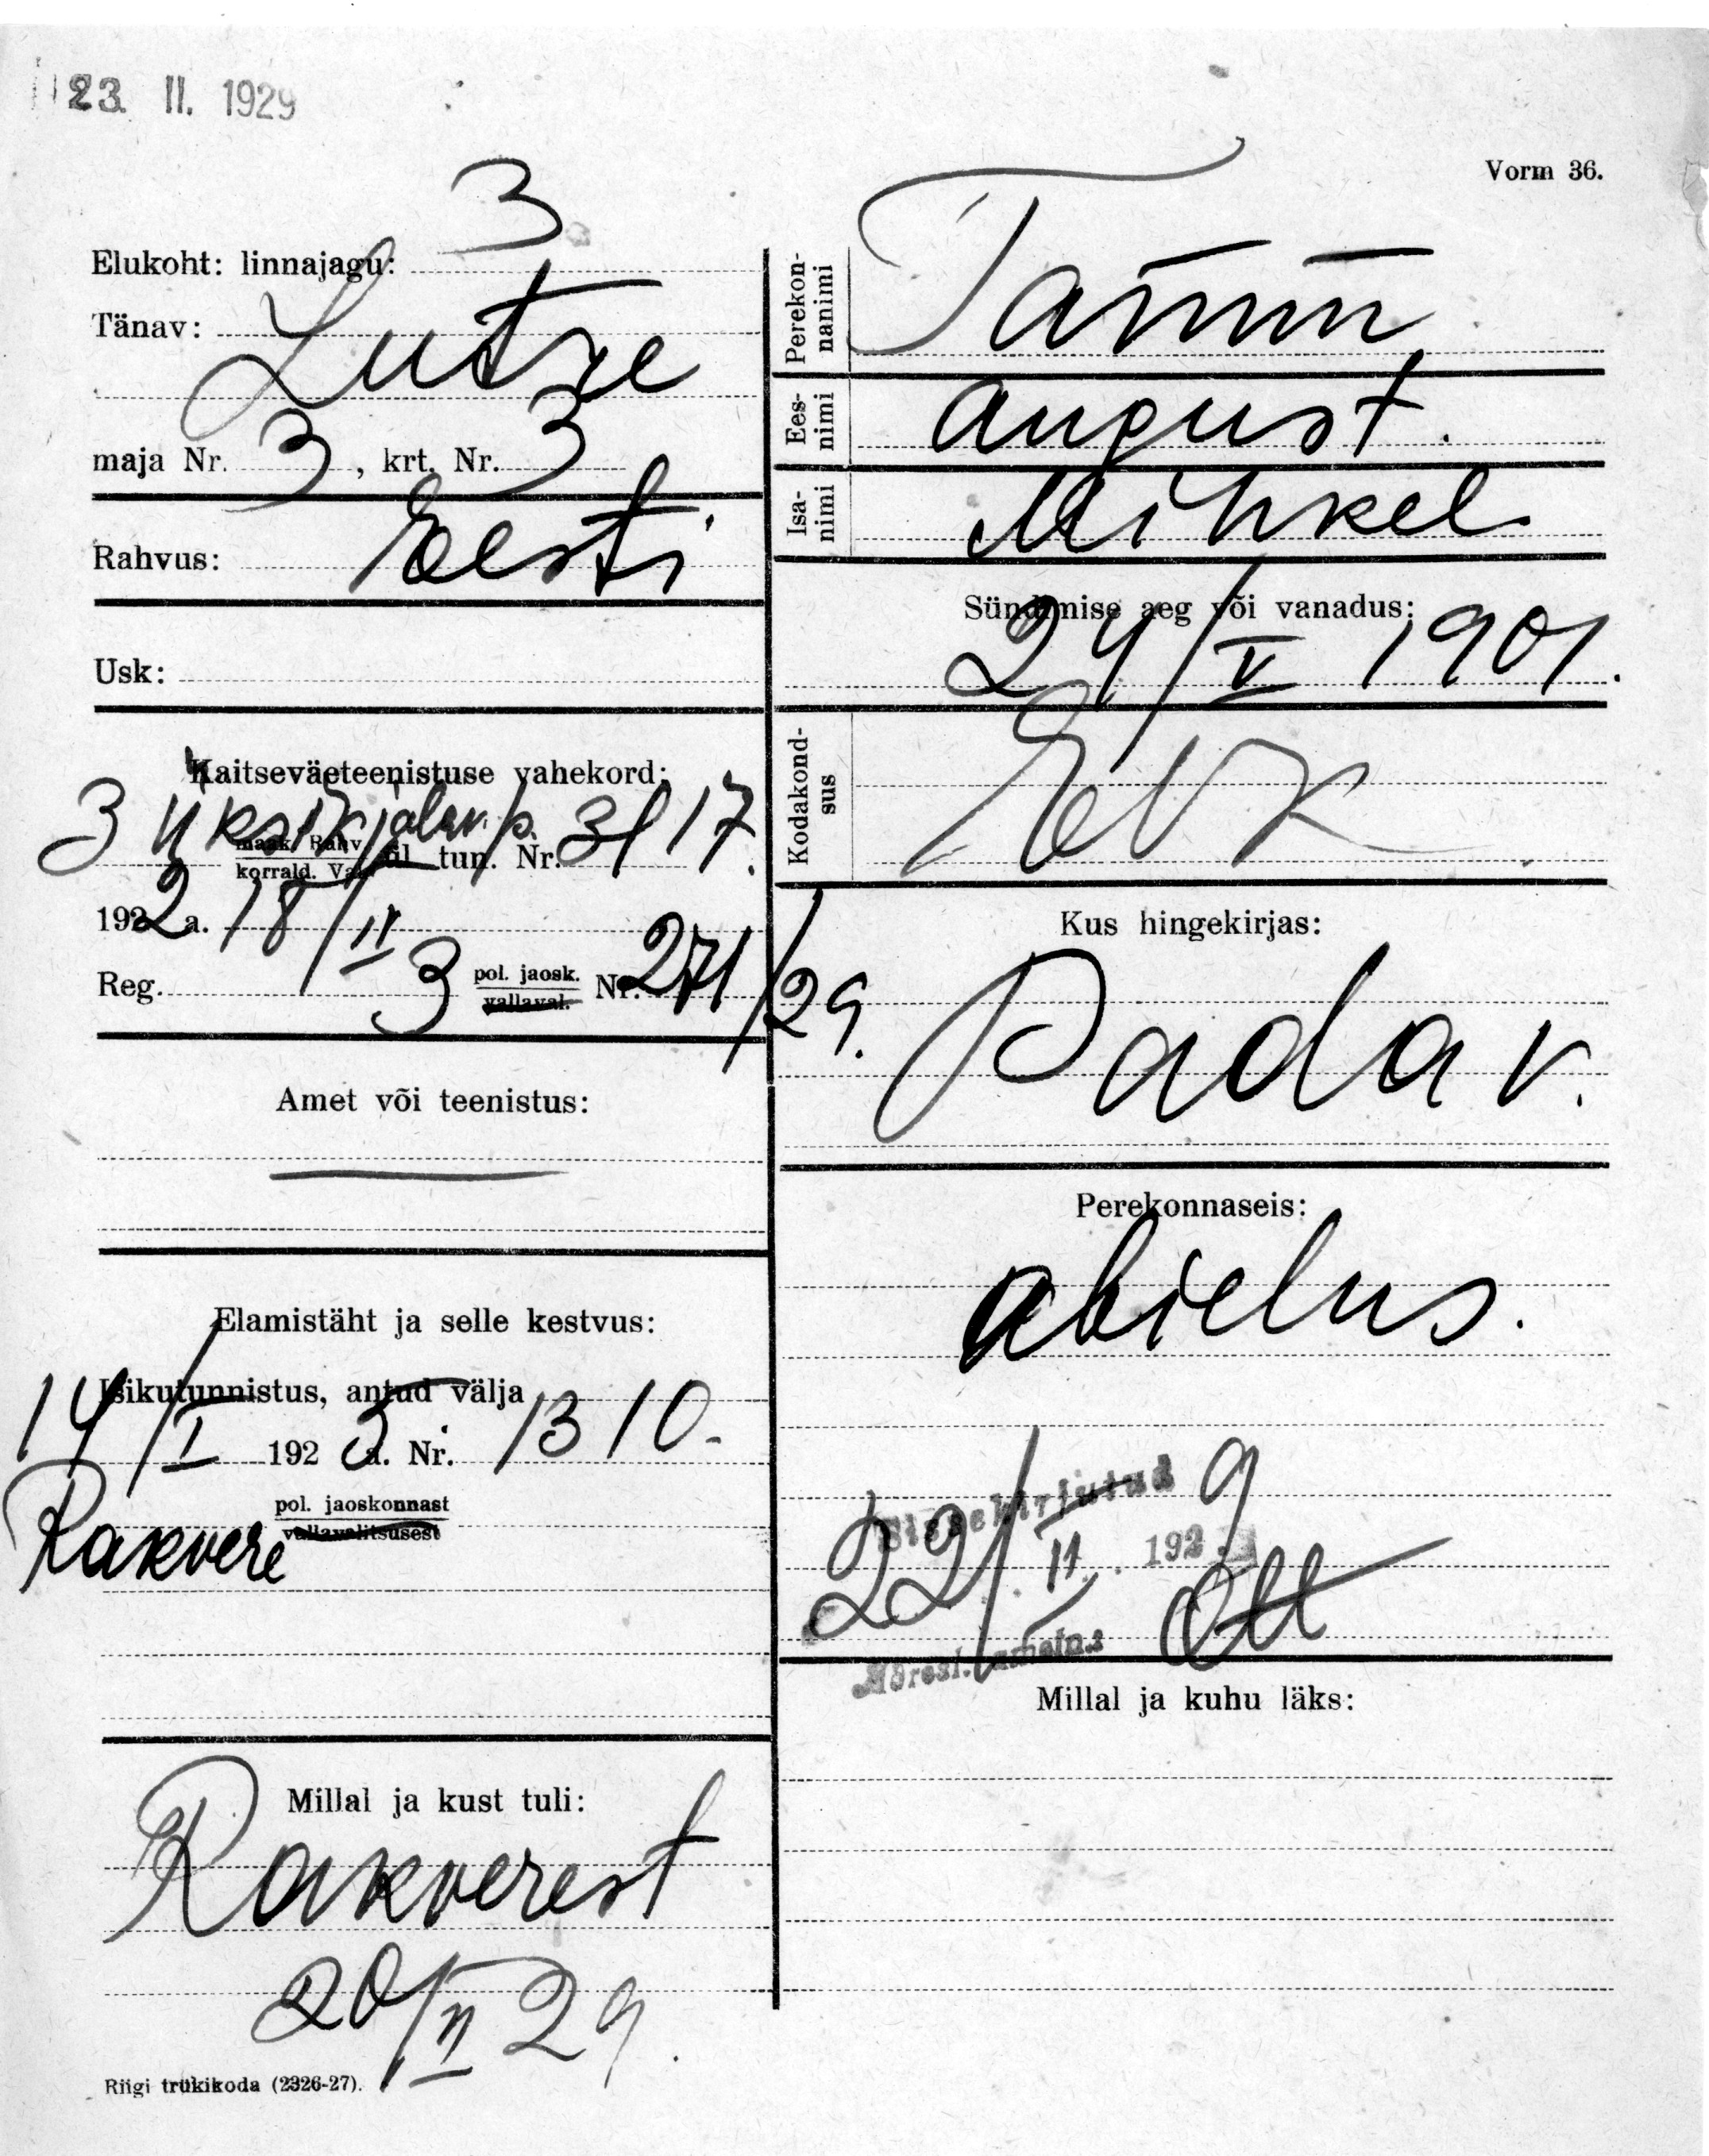 23. II. 1929
Vorm 36.
Elukoht: linnajagu: 3
Tänav: Lutze
maja Nr. 3, krt. Nr. 3
Rahvus: Eesti
Usk:
Kaitseväeteenistuse vahekord:
3 üksik jalav. p. 3117.
korrald. tun. Nr.
1922 a. 18/IV
Reg. 3 pol. jaosk. Nr. 271/29.
vallaval.
Amet või teenistus:
Elamistäht ja selle kestvus:
Isikutunnistus, antud välja
14/I 1925 a. Nr. 1310.
Rakvere pol. jaoskonnast
vallavalitsusest
Millal ja kust tuli:
Rakverest
20/II 29.
Riigi trükikoda (2326-27).
Perekonnanimi
Tamm
Eesnimi
August.
Isanimi
Mihkel
Sündimise aeg või vanadus:
24/V 1901.
Kodakondsus
EVK
Kus hingekirjas:
Pada v.
Perekonnaseis:
abielus.
Sissekirjutud
22/II 1929
Ott
Millal ja kuhu läks: